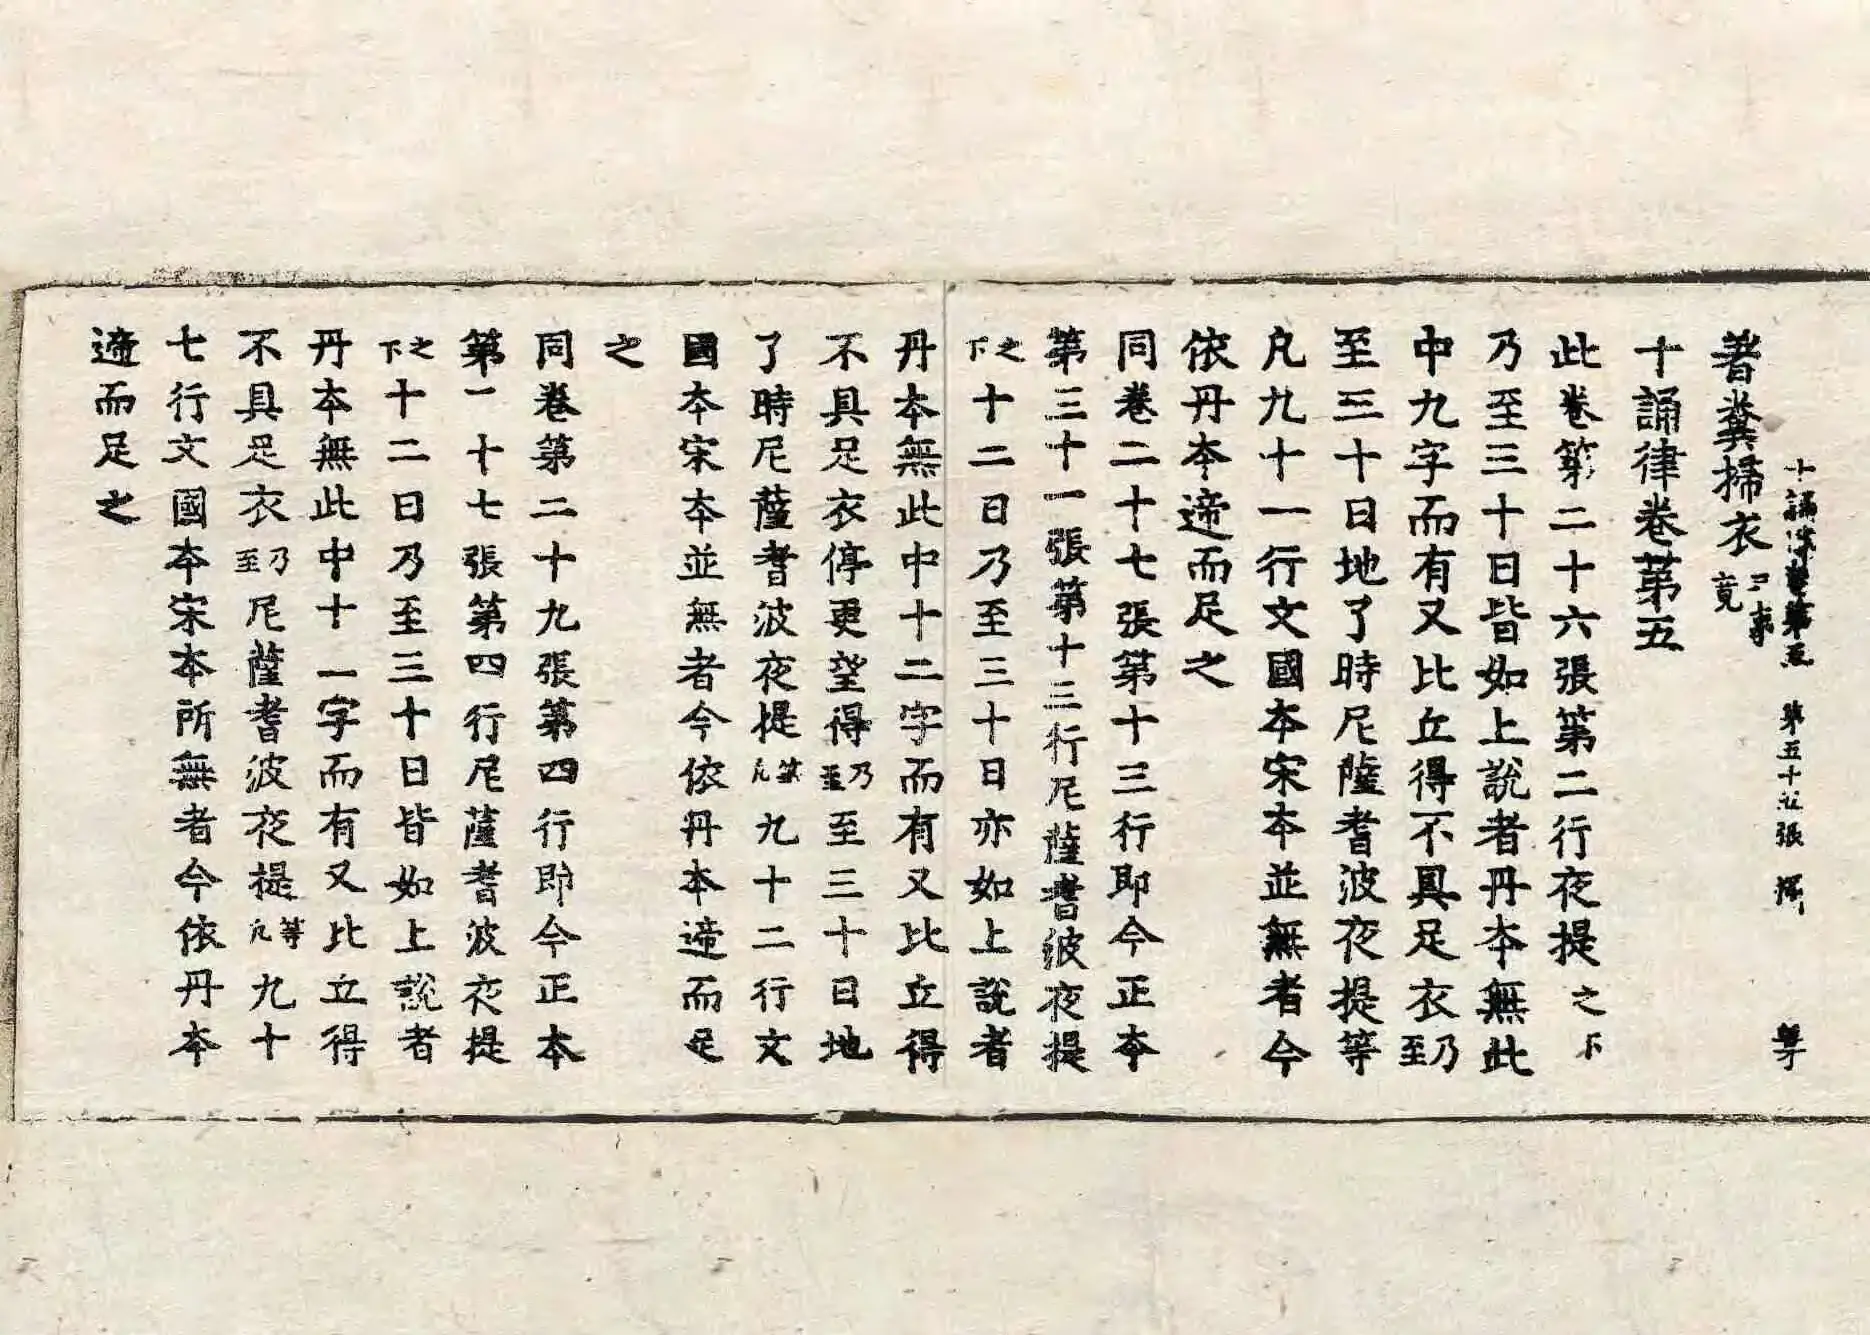 十誦律卷第五 第五十五張
著糞掃衣三事竟
十誦律卷第五
此卷第二十六張第二行夜提之下
乃至三十日皆如上說者丹本無此
中九字而有又比丘得不具足衣乃至
至三十日地了時尼薩耆波夜提等
凡九十一行文國本宋本並無者今
依丹本遆而足之
同卷二十七張第十三行即今正本
第三十一張第十三行尼薩耆波夜提
之下十二日乃至三十日亦如上說者
丹本無此中十二字而有又比丘得
不具足衣停更望得乃至至三十日地
了時尼薩耆波夜提等凡九十二行文
國本宋本並無者今依丹本遆而足
之
同卷第二十九張第四行即今正本
第一十七張第四行尼薩耆波夜提
之下十二日乃至三十日皆如上說者
丹本無此中十一字而有又比丘得
不具足衣乃至尼薩耆波夜提等凡九十
七行文國本宋本所無者今依丹本
遆而足之